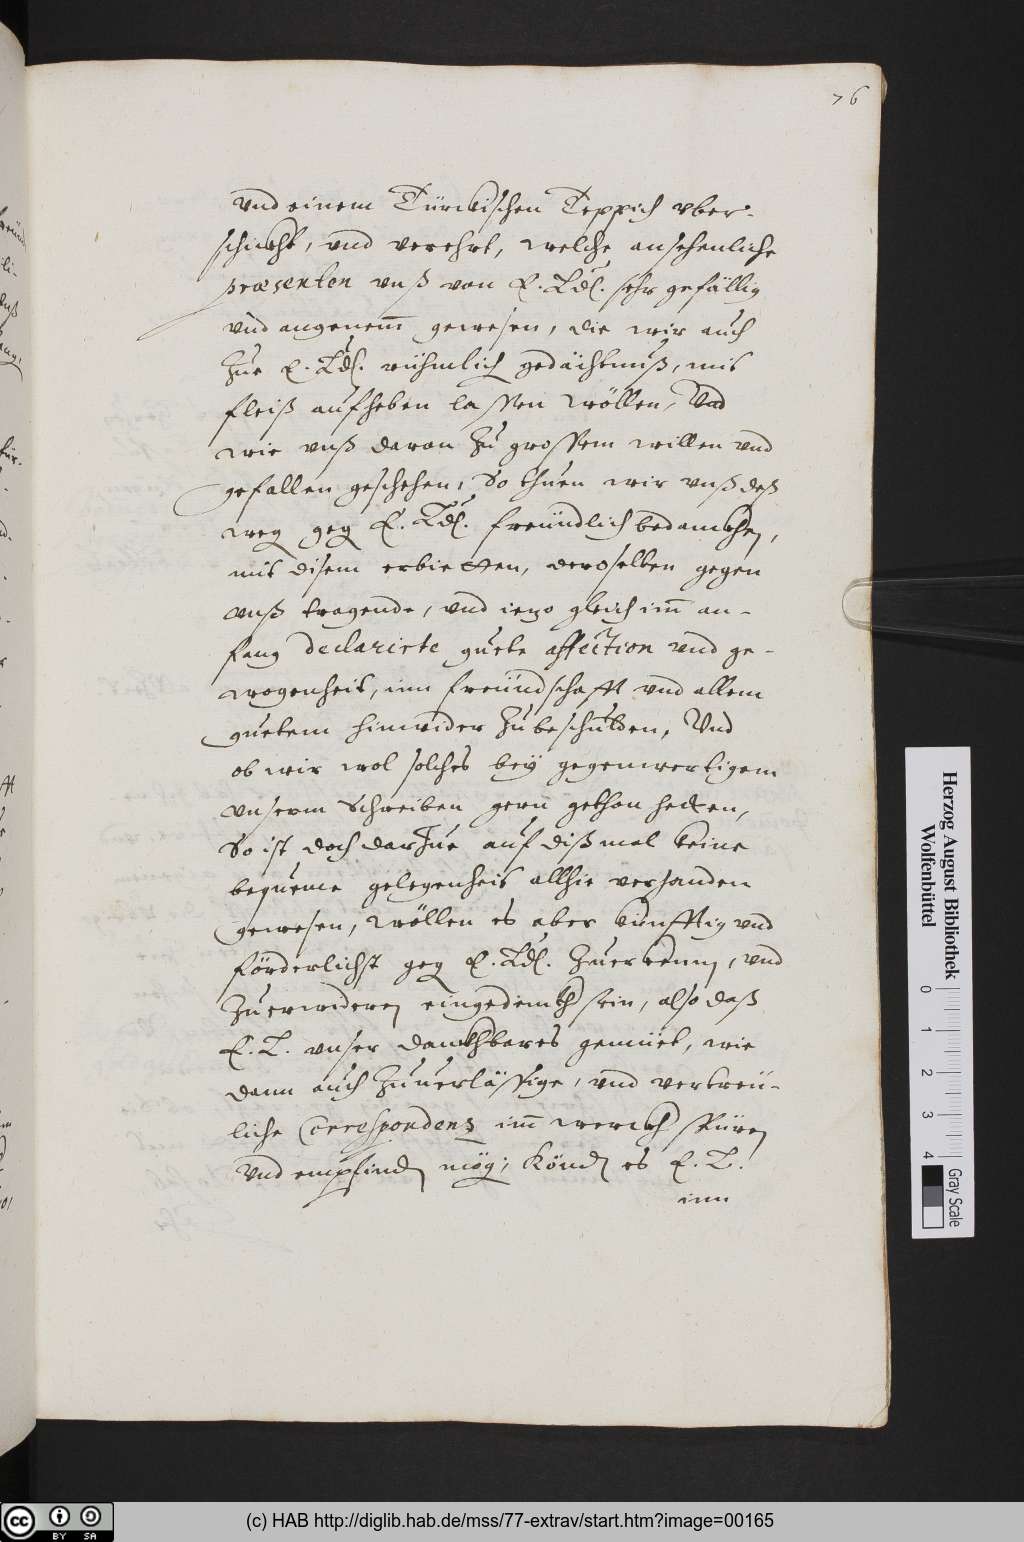 76
vnd einem Türckischen Teppich vber-
schickht, vnd verehrt, welche ansehenliche
præsenten vnß von E. Ldl. sehr gefällig
vnd angenem̄ gewesen, die wir auch
Zue E. Ldl. rühmlich gedächtnuß, mit
fleiß aufheben lassen wöllen, Vnd
wie vnß daran Zu grossem willen vnd
gefallen geschehen, So thuen wir vnß deß
weg geg E. Ldl. freündlich bedanckhen,
mit disem erbietten, deroselben gegen
vnß tragende, vnd iezo gleich im̄ an-
fang declarirte guete affection vnd ge-
wogenheit, inn freündschafft vnd allem
guetem hinwider Zubeschulden, Vnd
ob wir wol solches bey gegenwertigem
vnserm Schreiben gern gethan hetten,
So ist doch darZue auf dißmal keine
bequeme gelegenheit allhie verhanden
gewesen, wöllen es aber künfftig vnd
förderlichst geg E. Ldl. Zuerkennen, vnd
Zuerwideren eingedenckh sein, also daß
E. L. vnser danckhbares gemüet, wie
dann auch Zuuerlässige, vnd vertreü-
liche Correspondenz im̄ werckh spüren
vnd empfinden mög; Könden es E. L.
inn
Herzog August Bibliothek
Wolfenbüttel
0 1 2 3 4
Gray Scale
cc BY SA
(c) HAB http://diglib.hab.de/mss/77-extrav/start.htm?image=00165